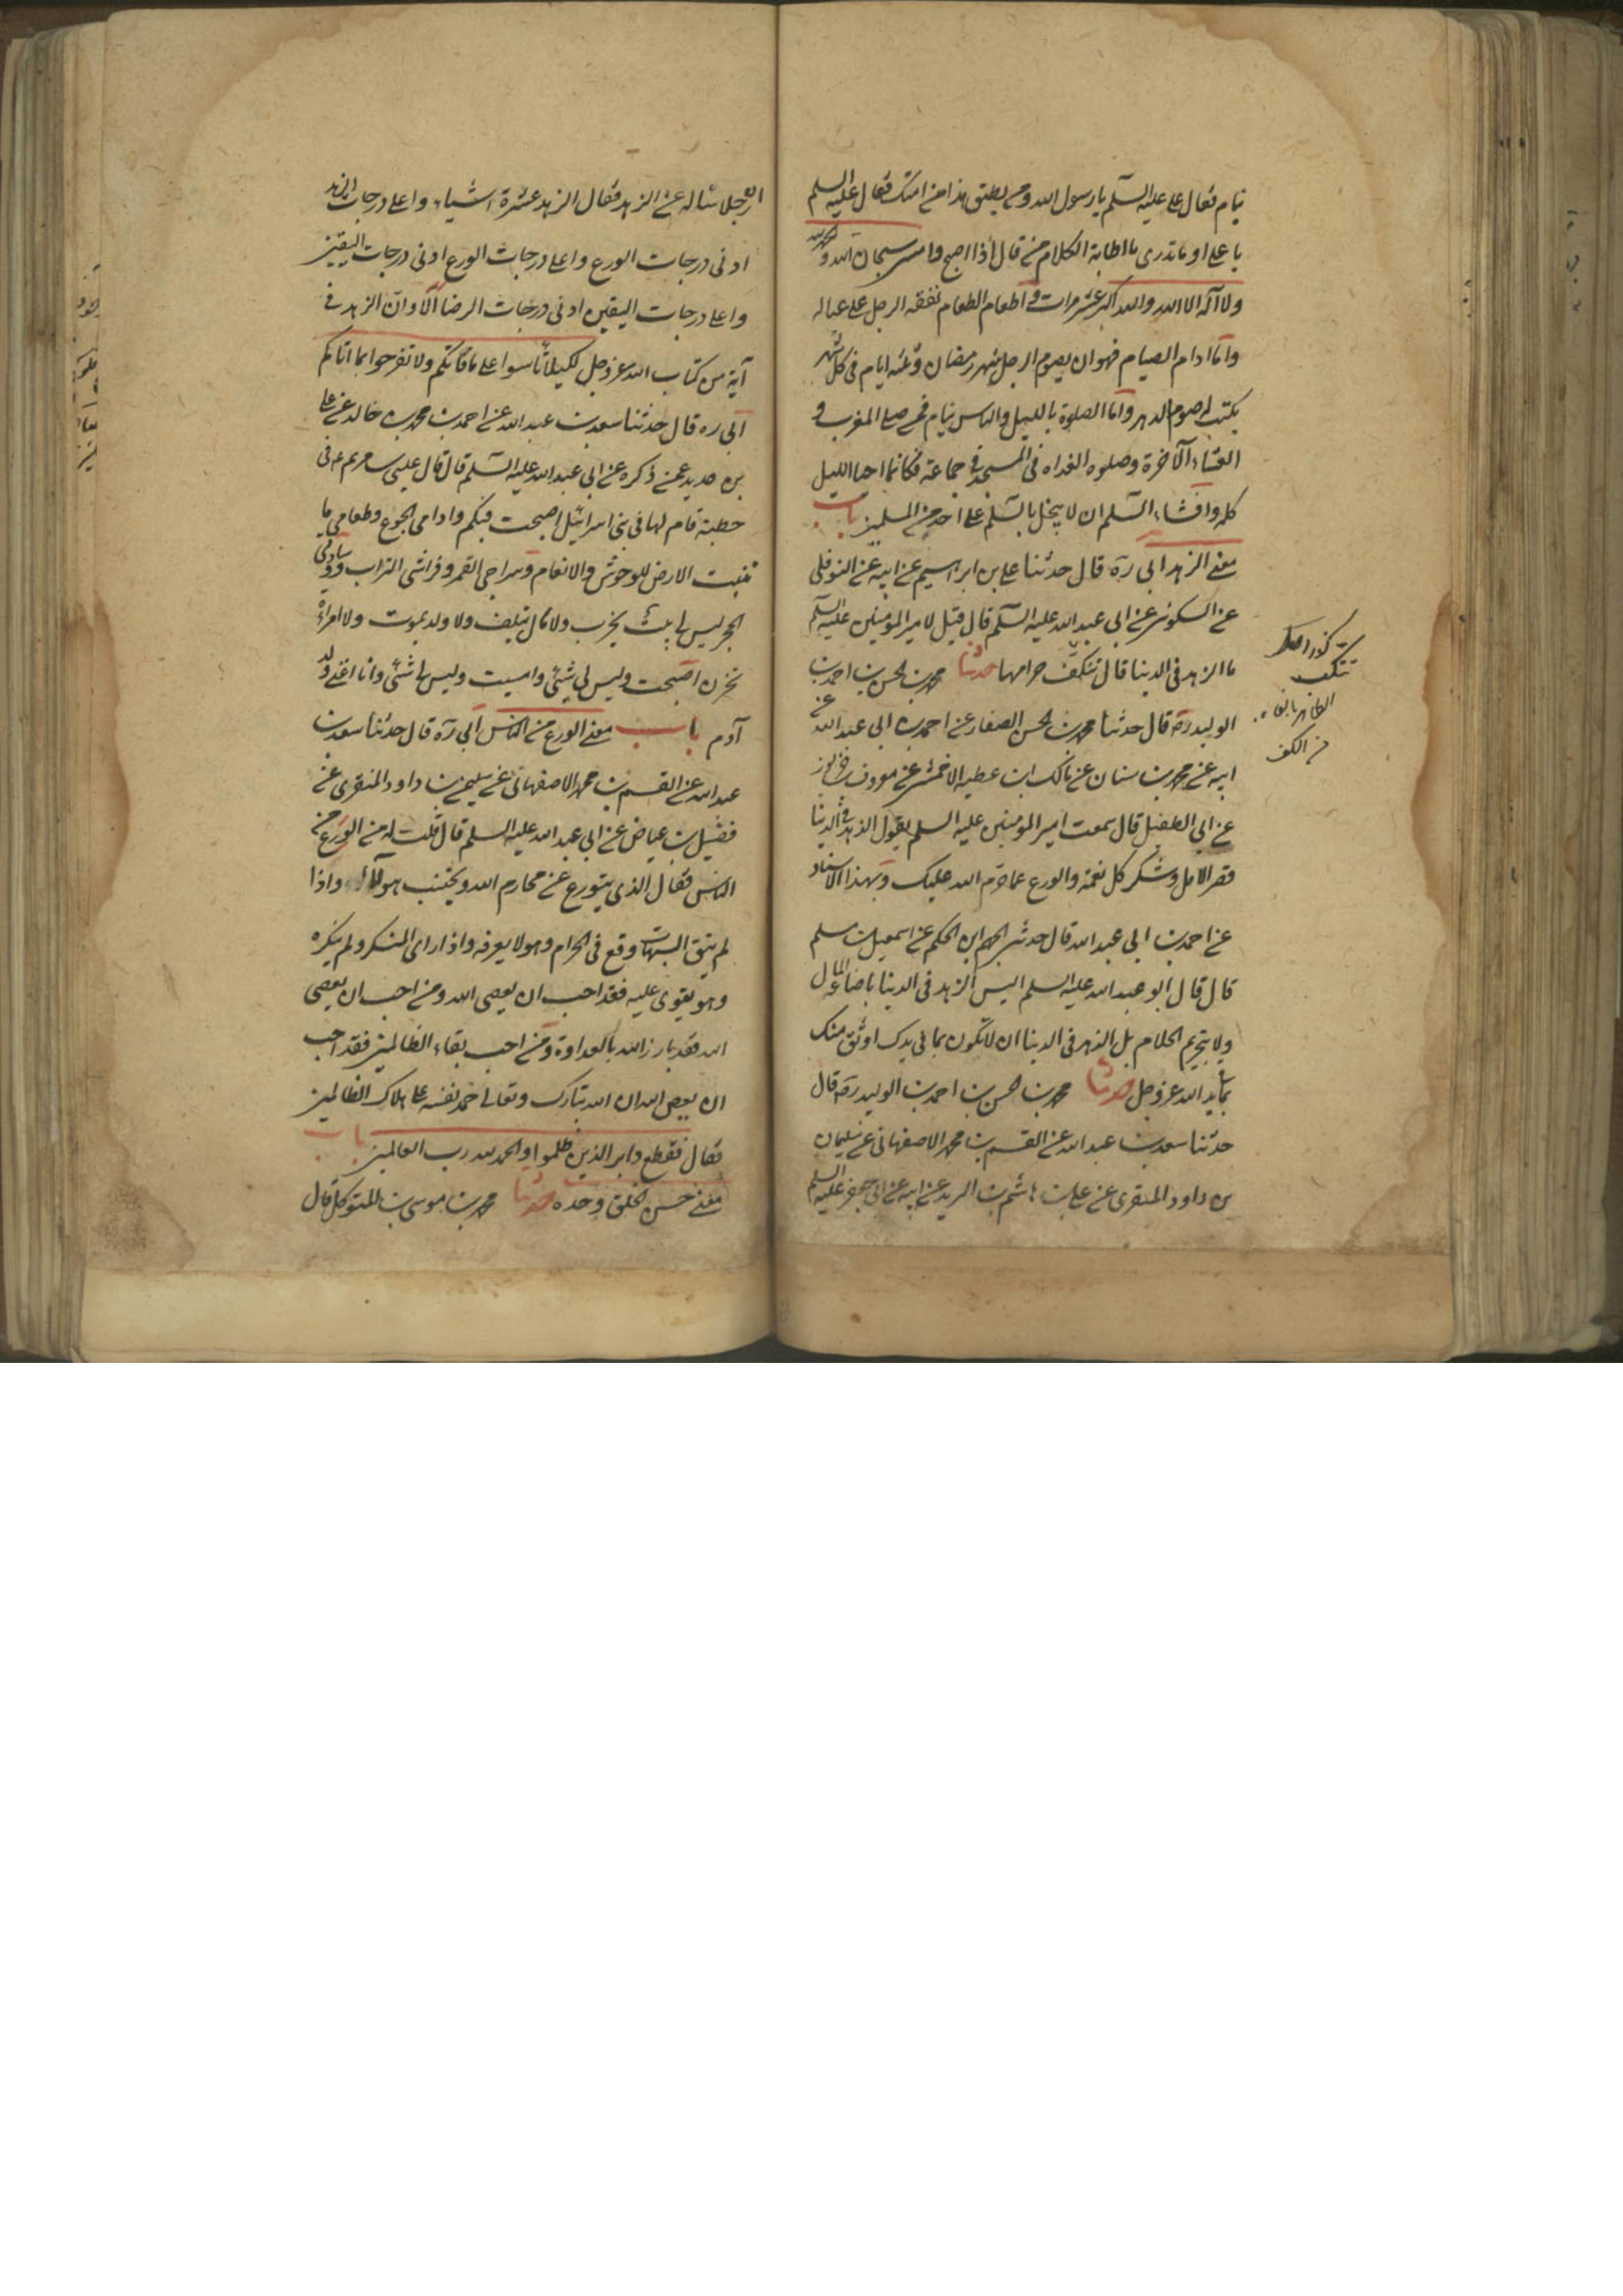 نيام فقال علي عليه السلم يا رسول الله ومن يطيق هذا من امتك فقال عليه السلم
يا علي او ما تدري ما اطابة الكلام من قال اذا اصبح وامسى سبحان الله والحمد لله
ولا اله الا الله والله اكبر عشر مرات واطعام الطعام نفقه الرجل علي عياله
واما ادام الصيام فهو ان يصوم الرجل شهر رمضان وثلثه ايام في كل شهر
يكتب له صوم الدهر واما الصلوة بالليل والناس نيام فمن صلي المغرب و
العشاء الآخرة وصلوه الغداه في المسجد في جماعة فكانما احيا الليل
كله وافشاء السلم ان لا يبخل بالسلم علي احد من المسلمين باب
معني الزهد ابي ره قال حدثنا علي بن ابراهيم عن ابيه عن النوفلي
عن السكوني عن ابي عبد الله عليه السلم قال قيل لامير المؤمنين عليه السلم
ما الزهد في الدنيا قال تنكف حرامها حدثنا محمد بن الحسن بن احمد بن
الوليد ره قال حدثنا محمد بن الحسن الصفار عن احمد بن ابي عبد الله عن
ابيه عن محمد بن سنان عن مالك ابن عطيه الاحمسي عن معروف بن خربوذ
عن ابي الطفيل قال سمعت امير المومنين عليه السلم يقول الزهد في الدنيا
قصر الامل وشكر كل نعمة والورع عما حرم الله عليك وبهذا الاسناد
عن احمد بن ابي عبد الله قال حدثني الجهم ابن الحكم عن اسمعيل بن مسلم
قال قال ابو عبد الله عليه السلم ليس الزهد في الدنيا باضاعة المال
ولا بتحريم الحلال بل الزهد في الدنيا ان لا تكون بما في يدك اوثق منك
بما بيد الله عز وجل حدثنا محمد بن الحسن بن احمد بن الوليد ره قال
حدثنا سعد بن عبد الله عن القسم بن محمد الاصفهاني عن سليمان
بن داود المنقري عن علي بن هاشم بن البريد عن ابيه عن ابي جعفر عليه السلم
تنكب
الظاهر بالفاء
من الكف
ان رجلا ساله عن الزهد فقال الزهد عشرة اشياء واعلي درجات الزهد
ادني درجات الورع واعلي درجات الورع ادني درجات اليقين
واعلي درجات اليقين ادني درجات الرضا الا وان الزهد في
آية من كتاب الله عز وجل لكيلا تاسوا علي ما فاتكم ولا تفرحوا بما اتاكم
ابي ره قال حدثنا سعد بن عبد الله عن احمد بن محمد بن خالد عن علي
بن حديد عمن ذكره عن ابي عبد الله عليه السلم قال قال عيسي بن مريم ع في
خطبة قام لها في بني اسرائيل اصبحت فيكم وادامي الجوع وطعامي ما
تنبت الارض للوحوش والانعام وسراجي القمر وفراشي التراب ووسادتي
الحجر ليس لي بيت يخرب ولا مال يتلف ولا ولد يموت ولا امراة
تحزن اصبحت وليس لي شئ وامسيت وليس لي شئ وانا اغني ولد
آدم باب معني الورع من الناس ابي ره قال حدثنا سعد بن
عبد الله عن القسم بن محمد الاصفهاني عن سليمن بن داود المنقري عن
فضيل بن عياض عن ابي عبد الله عليه السلم قال قلت له من الورع من
الناس فقال الذي يتورع عن محارم الله ويجتنب هولاء واذا
لم يتق الشبهات وقع في الحرام وهو لا يعرفه واذا راي المنكر ولم ينكره
وهو يقوي عليه فقد احب ان يعصي الله ومن احب ان يعصي
الله فقد بارز الله بالعداوة ومن احب بقاء الظالمين فقد احب
ان يعصي الله ان الله تبارك وتعالي حمد نفسه علي هلاك الظالمين
فقال فقطع دابر الذين ظلموا والحمد لله رب العالمين باب
معني حسن الخلق وحده حدثنا محمد بن موسي بن المتوكل قال